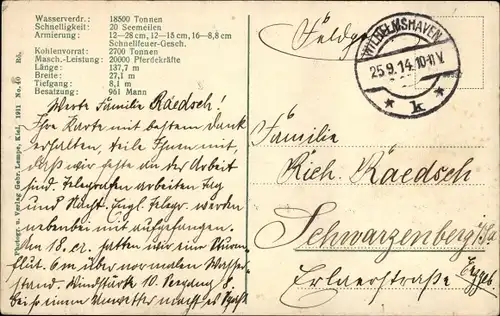 Wasserverdr.: 18500 Tonnen
Schnelligkeit: 20 Seemeilen
Armierung: 12—28 cm, 12—15 cm, 16—8,8 cm
Schnellfeuer-Gesch.
Kohlenvorrat: 2700 Tonnen
Masch.-Leistung: 20000 Pferdekräfte
Länge: 137,7 m
Breite: 27,1 m
Tiefgang: 8,1 m
Besatzung: 961 Mann
Werte Familie Raedsch!
Ihre Karte mit bestem Dank
erhalten, teile Ihnen mit,
daß wir feste an der Arbeit
sind. Telegrafen arbeiten Tag
und Nacht. Engl. Telegr. werden
nebenbei mit aufgefangen.
Am 18. cr. hatten wir eine
flut. 6 m über normalen Wasser-
stand. Windstärke 10. Seegang 8.
Bei so einem Unwetter macht es
Photogr. u. Verlag Gebr. Lempe, Kiel, 1911 No. 40
WILHELMSHAVEN
25.9.14.10-11V.
* k *
Familie
Rich. Raedsch
Schwarzenberg i/Sa
Erlaerstraße